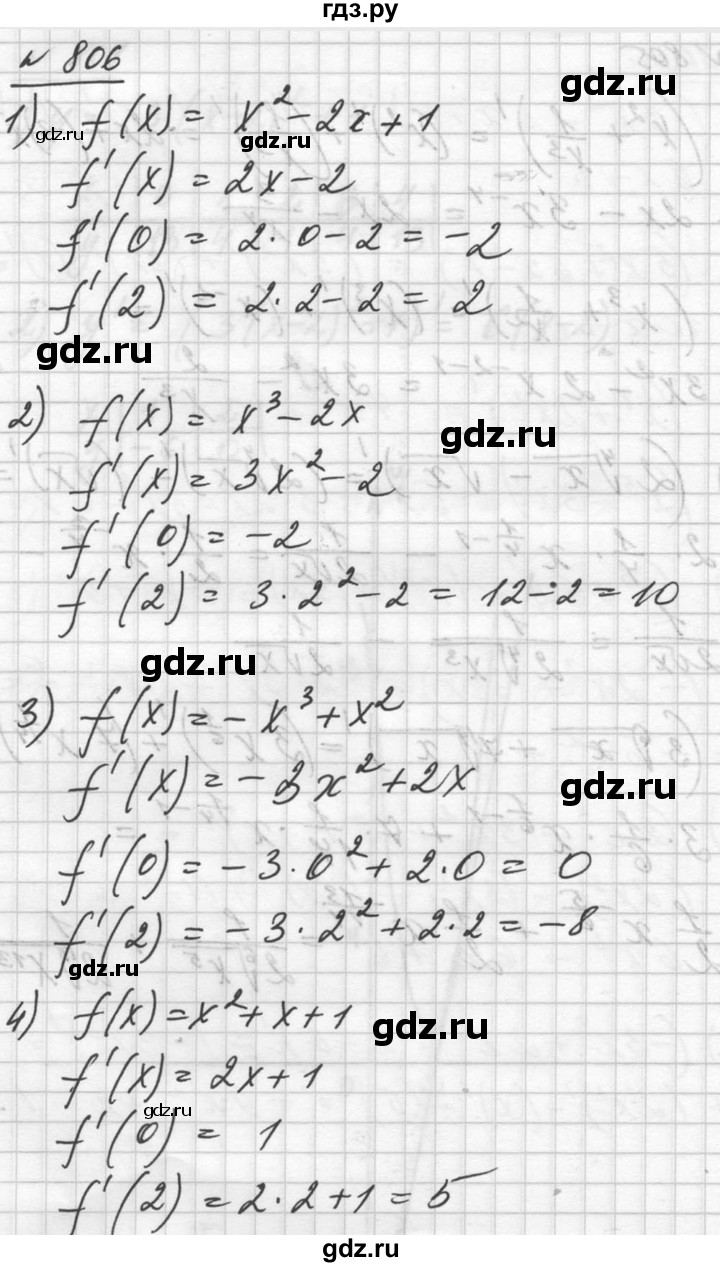 гдз.ру
№ 806
gdz.ru
1) f(x) = x² - 2x + 1
gdz.ru
gdz.ru
f'(x) = 2x - 2
f'(0) = 2 · 0 - 2 = -2
f'(2) = 2 · 2 - 2 = 2
gdz.ru
2) f(x) = x³ - 2x
gdz.ru
f'(x) = 3x² - 2
f'(0) = -2
f'(2) = 3 · 2² - 2 = 12 - 2 = 10
gdz.ru
3) f(x) = -x³ + x²
f'(x) = -3x² + 2x
gdz.ru
f'(0) = -3 · 0² + 2 · 0 = 0
f'(2) = -3 · 2² + 2 · 2 = -8
gdz.ru
4) f(x) = x² + x + 1
gdz.ru
f'(x) = 2x + 1
gdz.ru
f'(0) = 1
f'(2) = 2 · 2 + 1 = 5
gdz.ru